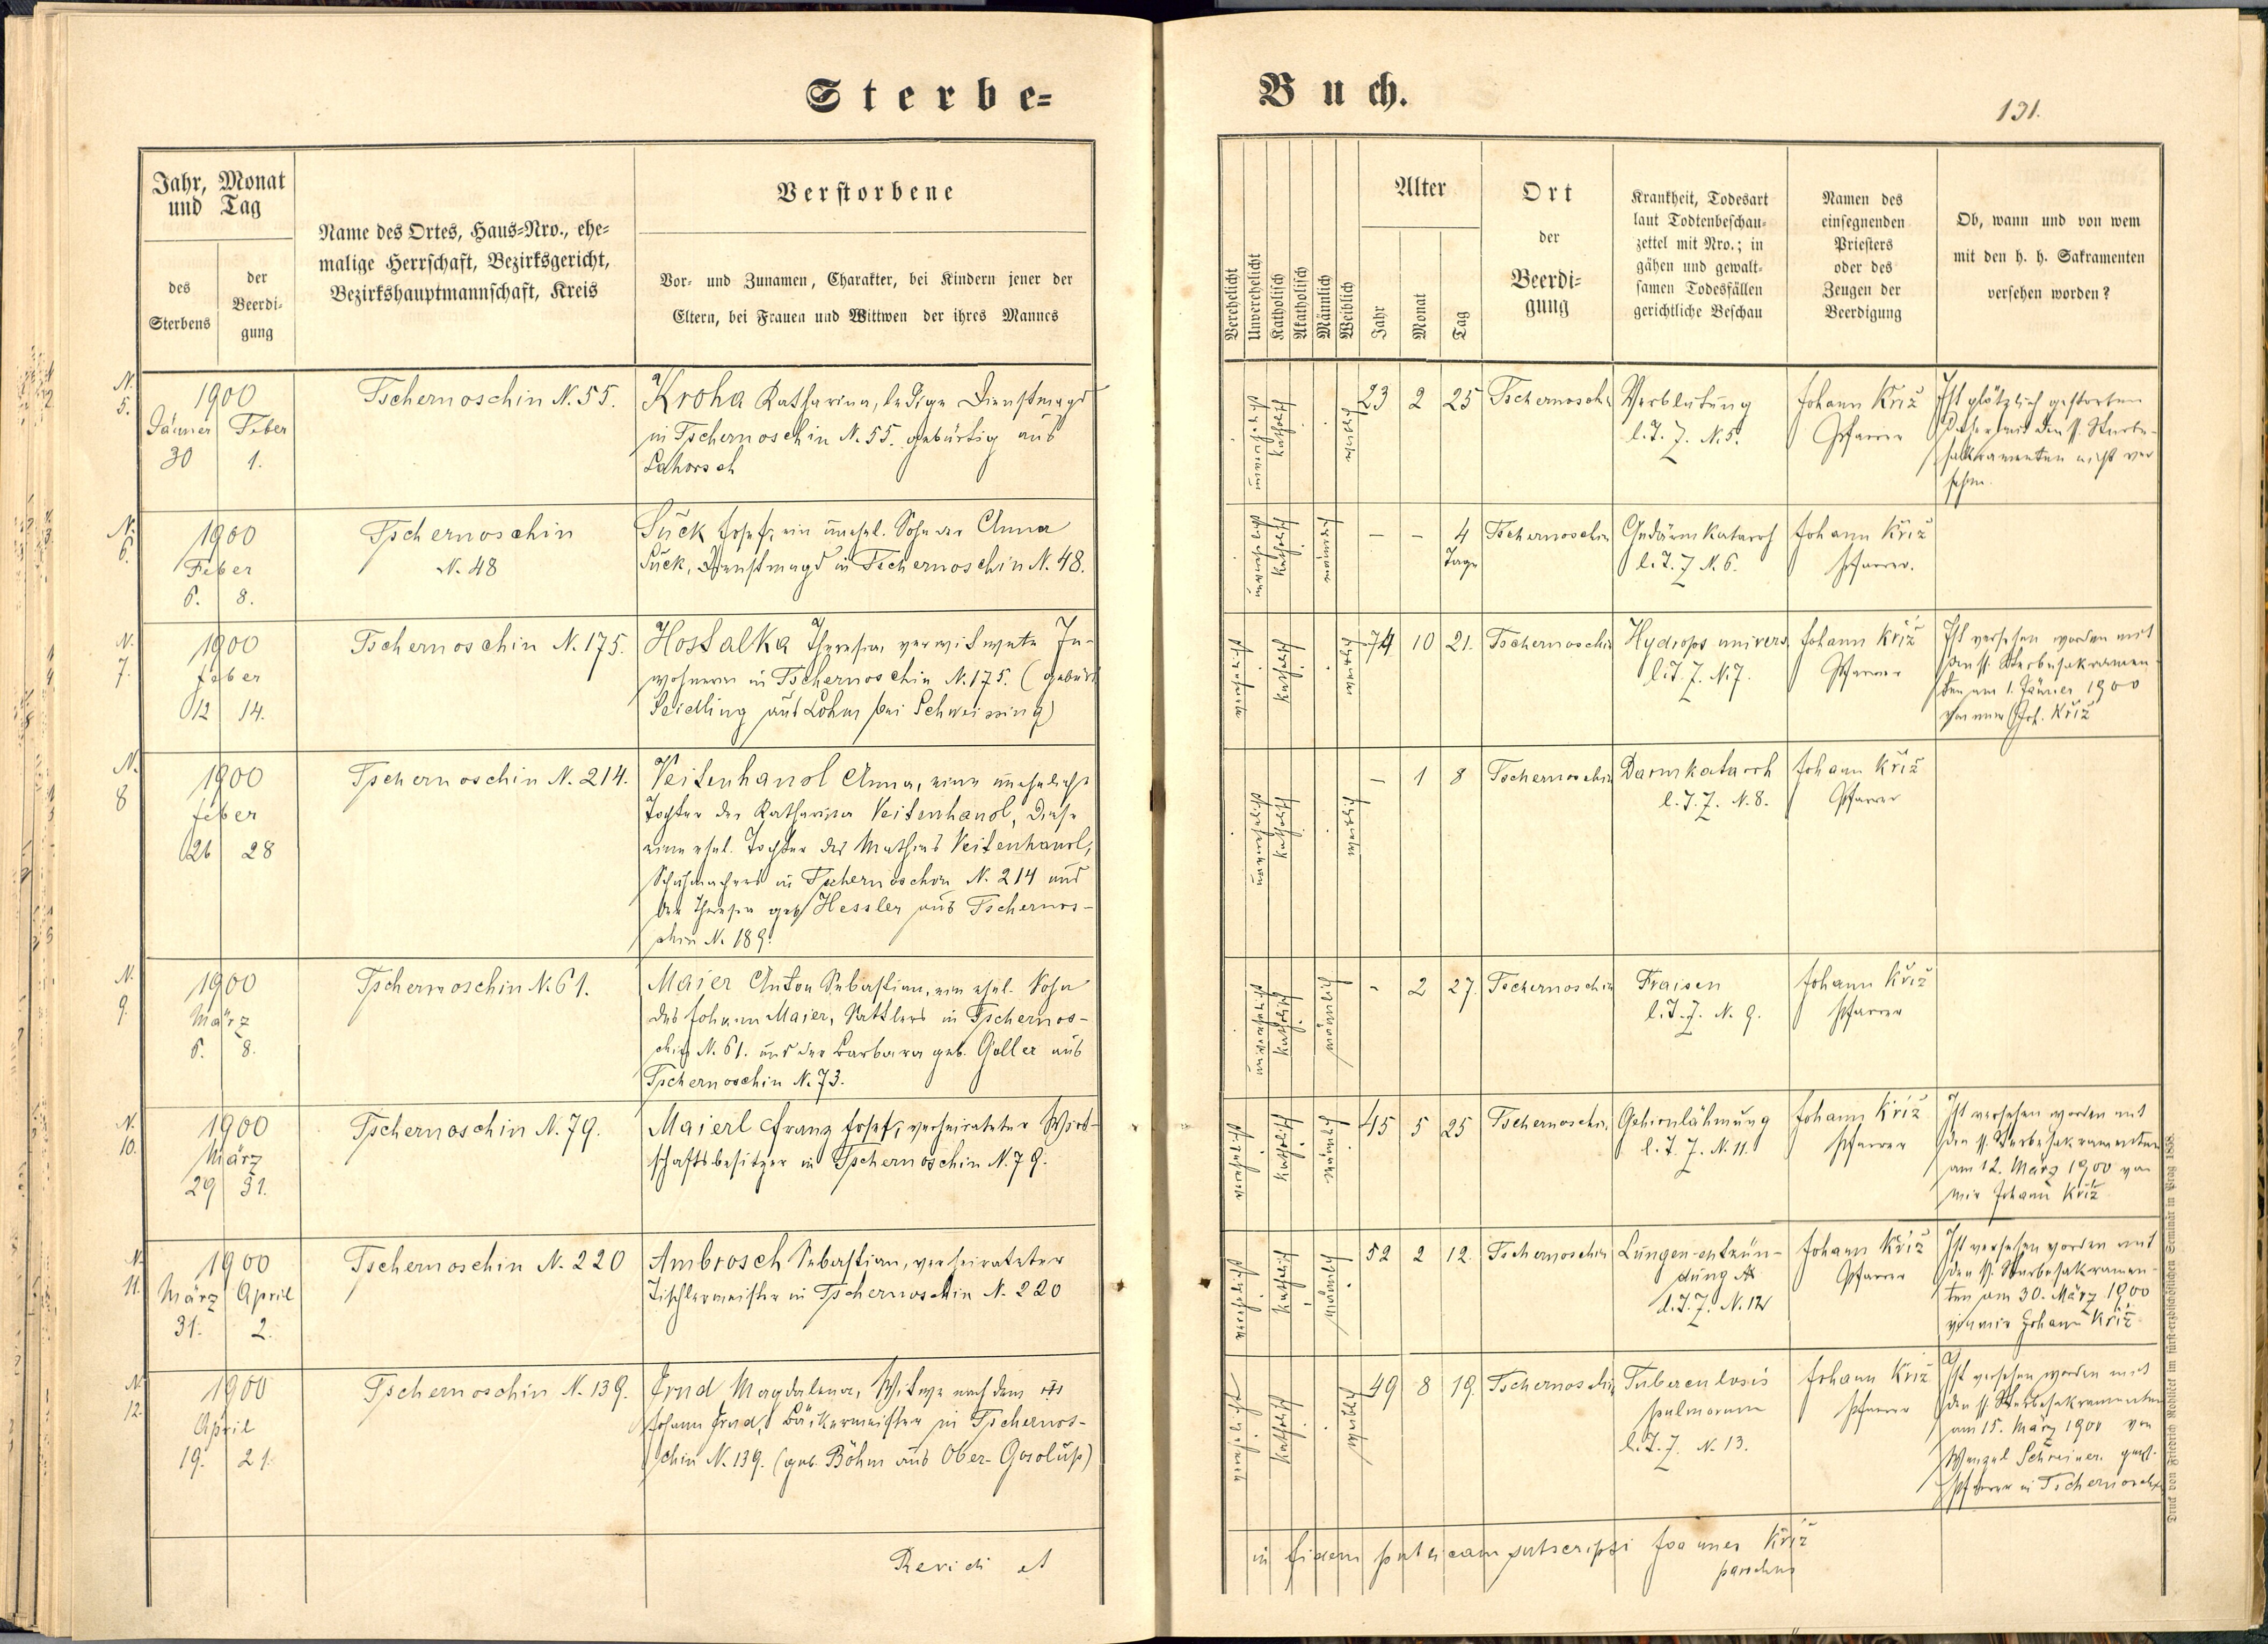 Sterbe=
Buch.
131.
Jahr, Monat
und Tag
des
Sterbens
der
Beerdi=
gung
Name des Ortes, Haus=Nro., ehe=
malige Herrschaft, Bezirksgericht,
Bezirkshauptmannschaft, Kreis
Verstorbene
Vor= und Zunamen, Charakter, bei Kindern jener der
Eltern, bei Frauen und Wittwen der ihres Mannes
Verehelicht
Unverehelicht
Katholisch
Akatholisch
Männlich
Weiblich
Alter
Jahr
Monat
Tag
Ort
der
Beerdi=
gung
Krankheit, Todesart
laut Todtenbeschau=
zettel mit Nro.; in
gähen und gewalt=
samen Todesfällen
gerichtliche Beschau
Namen des
einsegnenden
Priesters
oder des
Zeugen der
Beerdigung
Ob, wann und von wem
mit den h. h. Sakramenten
versehen worden?
N. 5.
1900
Jänner Feber
30 1.
Tschernoschin N. 55.
Kroha Katharina, ledige Dienstmagd
in Tschernoschin N. 55. gebürtig aus
Lahorsch
katholisch
weiblich
23 2 25
Tschernoschin
Verblutung
l. T. Z. N. 5.
Johann Kříž
Pfarrer
Ist plötzlich gestorben
daher mit den hl. Sterbe-
sakramenten nicht ver
sehen.
N. 6.
1900
Feber
6. 8.
Tschernoschin
N. 48
Suck Josef, ein unehel. Sohn der Anna
Suck, Dienstmagd in Tschernoschin N. 48.
katholisch
- - 4
Tage
Tschernoschin
Gedärmkatarrh
l. T. Z N. 6.
Johann Kříž
Pfarrer.
N. 7.
1900
Feber
12 14.
Tschernoschin N. 175.
Hostalka Theresia, verwitwete In-
wohnerin in Tschernoschin N. 175. (gebür
Seidling aus Lohm bei Schweissing)
katholisch
weiblich
74 10 21.
Tschernoschin
Hydrops univers.
l. T. Z. N. 7.
Johann Kříž
Pfarrer
Ist versehen worden mit
den hl. Sterbesakramen
ten am 1. Jänner 1900
von mir Joh. Kříž
N. 8
1900
Feber
26 28
Tschernoschin N. 214.
Veitenhansl Anna, eine uneheliche
Tochter der Katharina Veitenhansl, diese
eine ehel. Tochter des Mathias Veitenhansl,
Schuhmachers in Tschernoschin N. 214 und
der Theresia geb. Hessler aus Tschernos-
chin N. 189.
katholisch
weiblich
- 1 8
Tschernoschin
Darmkatarrh
l. T. Z. N. 8.
Johann Kříž
Pfarrer
N. 9.
1900
März
6. 8.
Tschernoschin N. 61.
Maier Anton Sebastian, ein ehel. Sohn
des Johann Maier, Sattlers in Tschernos-
chin N. 61. und der Barbara geb. Goller aus
Tschernoschin N. 73.
katholisch
männlich
- 2 27.
Tschernoschin
Fraisen
l. T. Z. N. 9.
Johann Kříž
Pfarrer
N. 10.
1900
März
29 31.
Tschernoschin N. 79.
Maierl Franz Josef, verheirateter Wirt-
schaftsbesitzer in Tschernoschin N. 79.
katholisch
männlich
45 5 25
Tschernoschin
Gehirnlähmung
l. T. Z. N. 11.
Johann Kříž
Pfarrer
Ist versehen worden mit
den hl. Sterbesakramenten
am 12. März 1900 von
mir Johann Kříž
N. 11.
1900
März April
31. 2.
Tschernoschin N. 220
Ambrosch Sebastian, verheirateter
Tischlermeister in Tschernoschin N. 220
katholisch
männlich
52 2 12.
Tschernoschin
Lungen-entzün-
dung
l. T. Z. N. 12
Johann Kříž
Pfarrer
Ist versehen worden mit
den hl. Sterbesakramen-
ten am 30. März 1900
von mir Johann Kříž
N. 12.
1900
April
19. 21.
Tschernoschin N. 139.
Magdalena, Witwe nach dem
Johann Bäckermeister in Tschernos-
chin N. 139. (geb. Böhm aus Ober-Gosolup)
katholisch
weiblich
49 8 19.
Tschernoschin
Tuberculosis
pulmonum
l. T. Z. N. 13.
Johann Kříž
Pfarrer
Ist versehen worden mit
den hl. Sterbesakramenten
am 15. März 1900 von
Wenzel Schreiner
Pfarrer in Tschernoschin
Revidi et
in fidem publicam subscripsi Joannes Kříž
parochus
Druck von Friedrich Rohliček im fürsterzbischöflichen Seminär in Prag 1858.